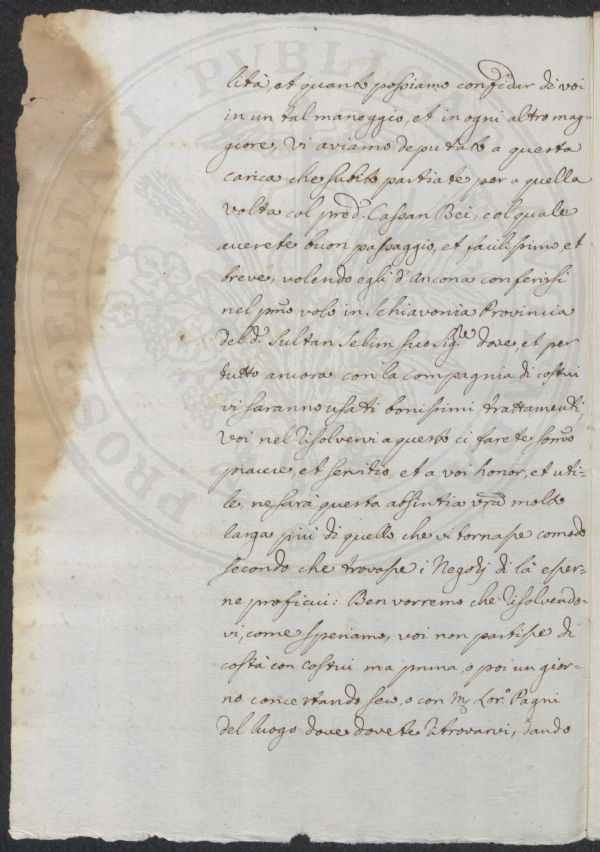 lità, et quanto possiamo confidar di voi
in un tal maneggio, et in ogni altro mag=
giore, Vi aviamo deputato a questa
carica che subito partiate per a quella
volta col pred.º Cassan Bei, col quale
averete buon passaggio, et facilissimo et
breve, volendo egli d'Ancona conferirsi
nel p͞mo volo in Schiavonia Provincia
del d.º Sultan Selim suo Sig.re dove, et per
tutto ancora con la compagnia di costui
vi saranno usati bonissimi trattamenti,
voi nel risolvervi a questo ci farete som͞o
piacere, et servitio, et a voi honor, et uti=
le, ne sarà questa absintia v͞ra molto
larga più di quello che vi tornasse comodo
secondo che trovasse i Negotj di là esser=
ne proficui: Ben vorremo che risolvendo=
vi, come speriamo, voi non partisse di
costà con costui ma prima, o poi un gior=
no concertando seco, o con M. Lor.º Pagni
del luogo dove dovete ritrovarvi, dando
PROSPERITATI PUBLICAE